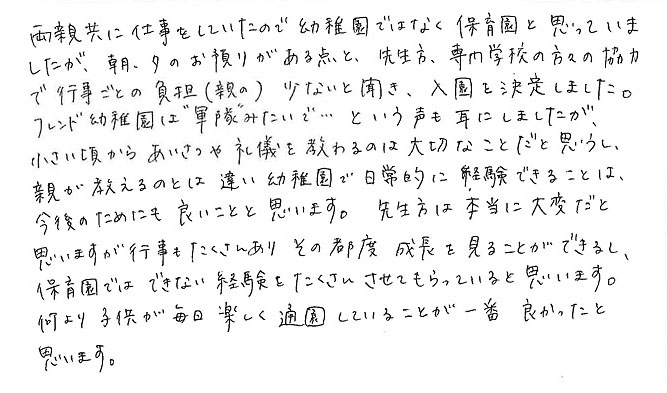 両親共に仕事をしていたので幼稚園ではなく保育園と思っていま
したが、朝、夕のお預りがある点と、先生方、専門学校の方々の協力
で行事ごとの負担(親の)少ないと聞き、入園を決定しました。
フレンド幼稚園は"軍隊"みたいで…という声も耳にしましたが、
小さい頃からあいさつや礼儀を教わるのは大切なことだと思うし、
親が教えるのとは違い幼稚園で日常的に経験できることは、
今後のためにも良いことと思います。先生方は本当に大変だと
思いますが行事もたくさんありその都度成長を見ることができるし、
保育園ではできない経験をたくさんさせてもらっていると思います。
何より子供が毎日楽しく通園していることが一番良かったと
思います。